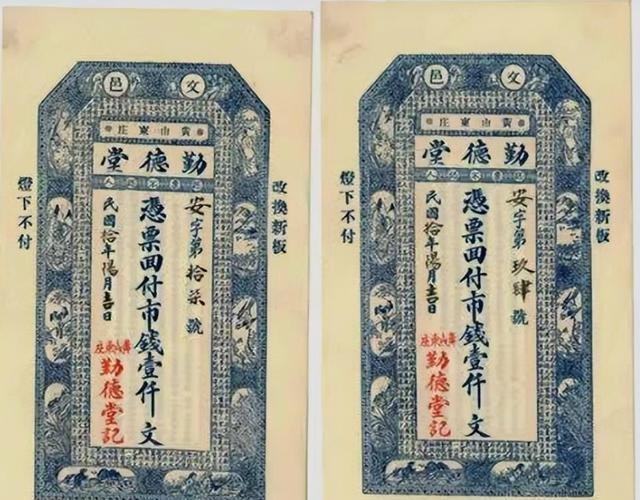 文邑
黄山東庄
勤德堂
認票不認人
改換新板
安字第拾柒號
憑票回付市錢壹仟文
民國拾年陽月吉日
黄山東庄
勤德堂記
燈下不付
文邑
黄山東庄
勤德堂
認票不認人
改換新板
安字第玖肆號
憑票回付市錢壹仟文
民國拾年陽月吉日
黄山東庄
勤德堂記
燈下不付